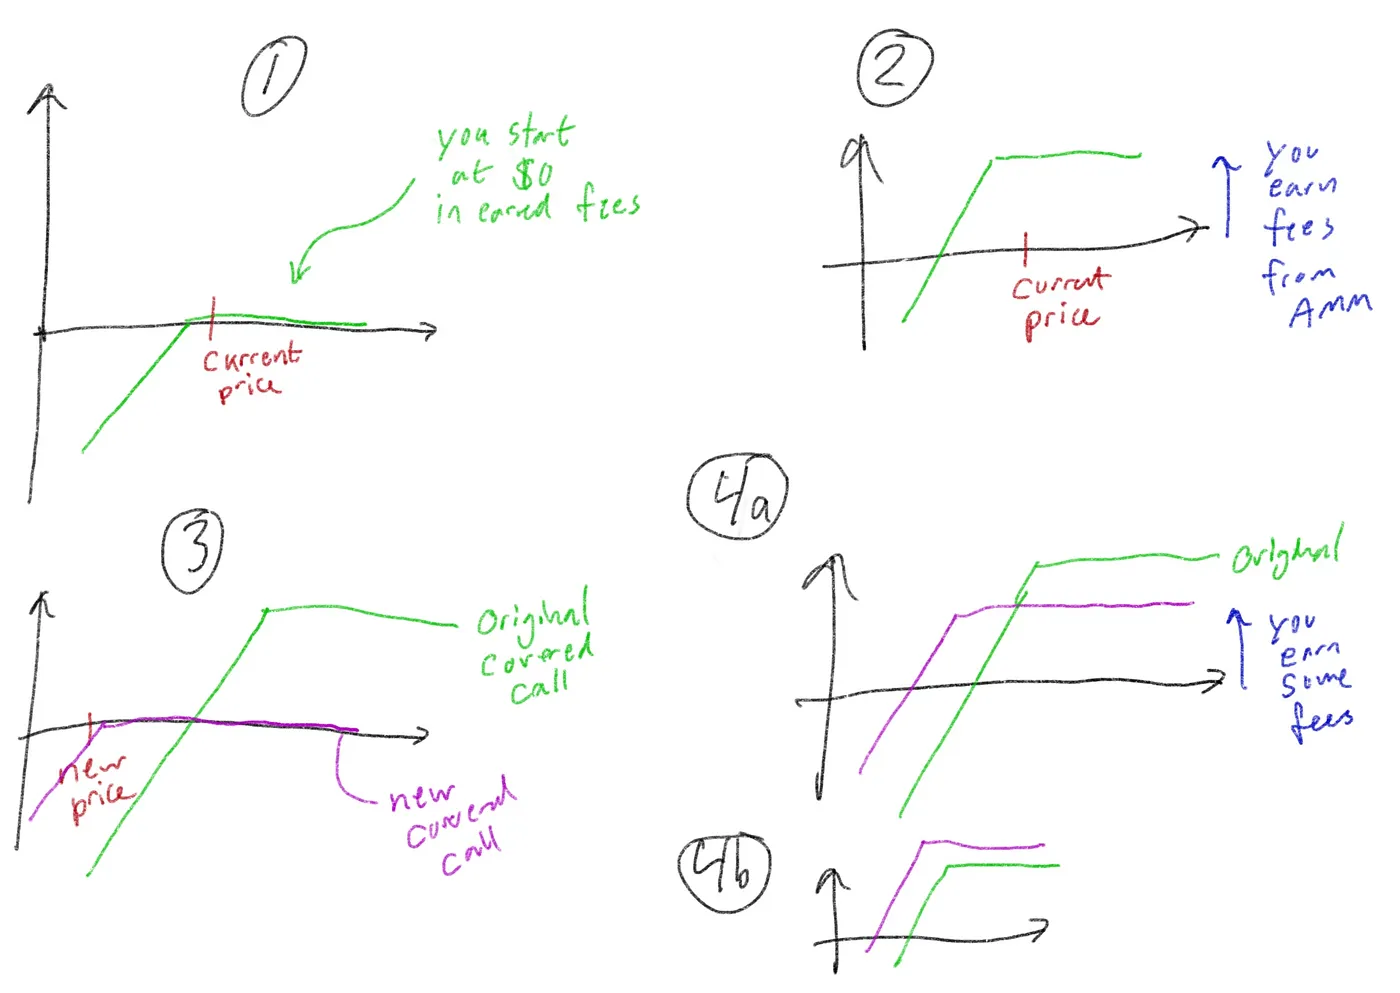 1
you start
at $0
in earned fees
Current
price
2
Current
price
you
earn
fees
from
AMM
3
Original
covered
call
new
price
new
covered
call
4a
Original
you
earn
some
fees
4b